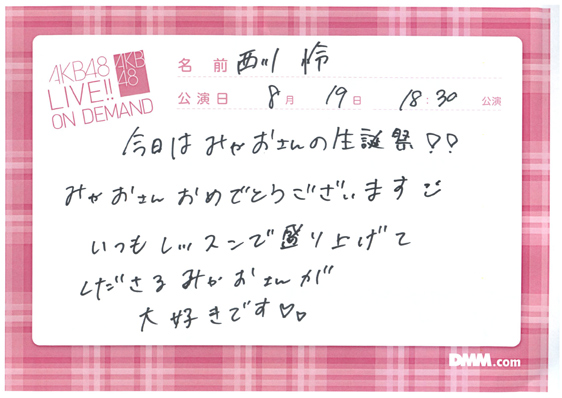 AKB48
LIVE!!
ON DEMAND
AKB
48
名 前 西川 怜
公演日 8月 19日 18:30 公演
今日はみゃおさんの生誕祭♡♡
みゃおさんおめでとうございます
いつもレッスンで盛り上げて
くださるみゃおさんが
大好きです♡♡
DMM.com